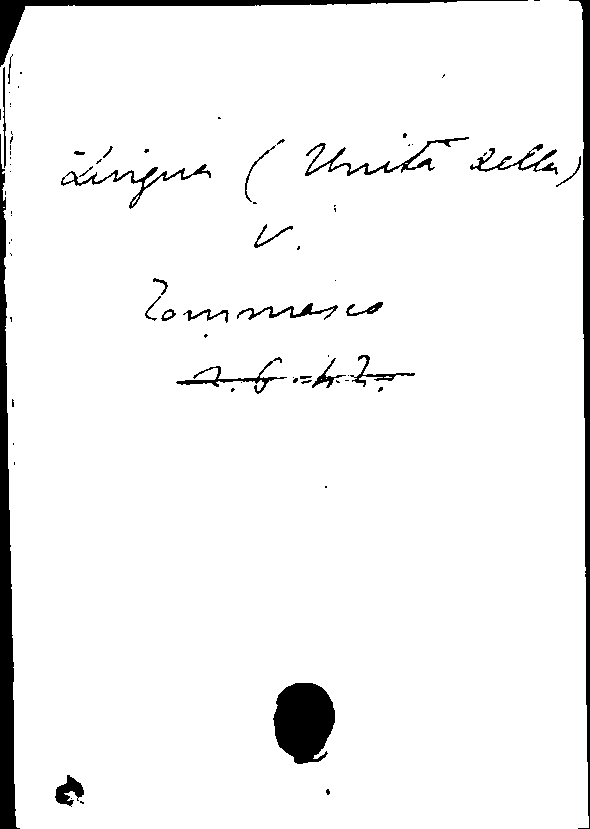 Lingua (Unità della)
V.
Tommaseo
2.6.42.